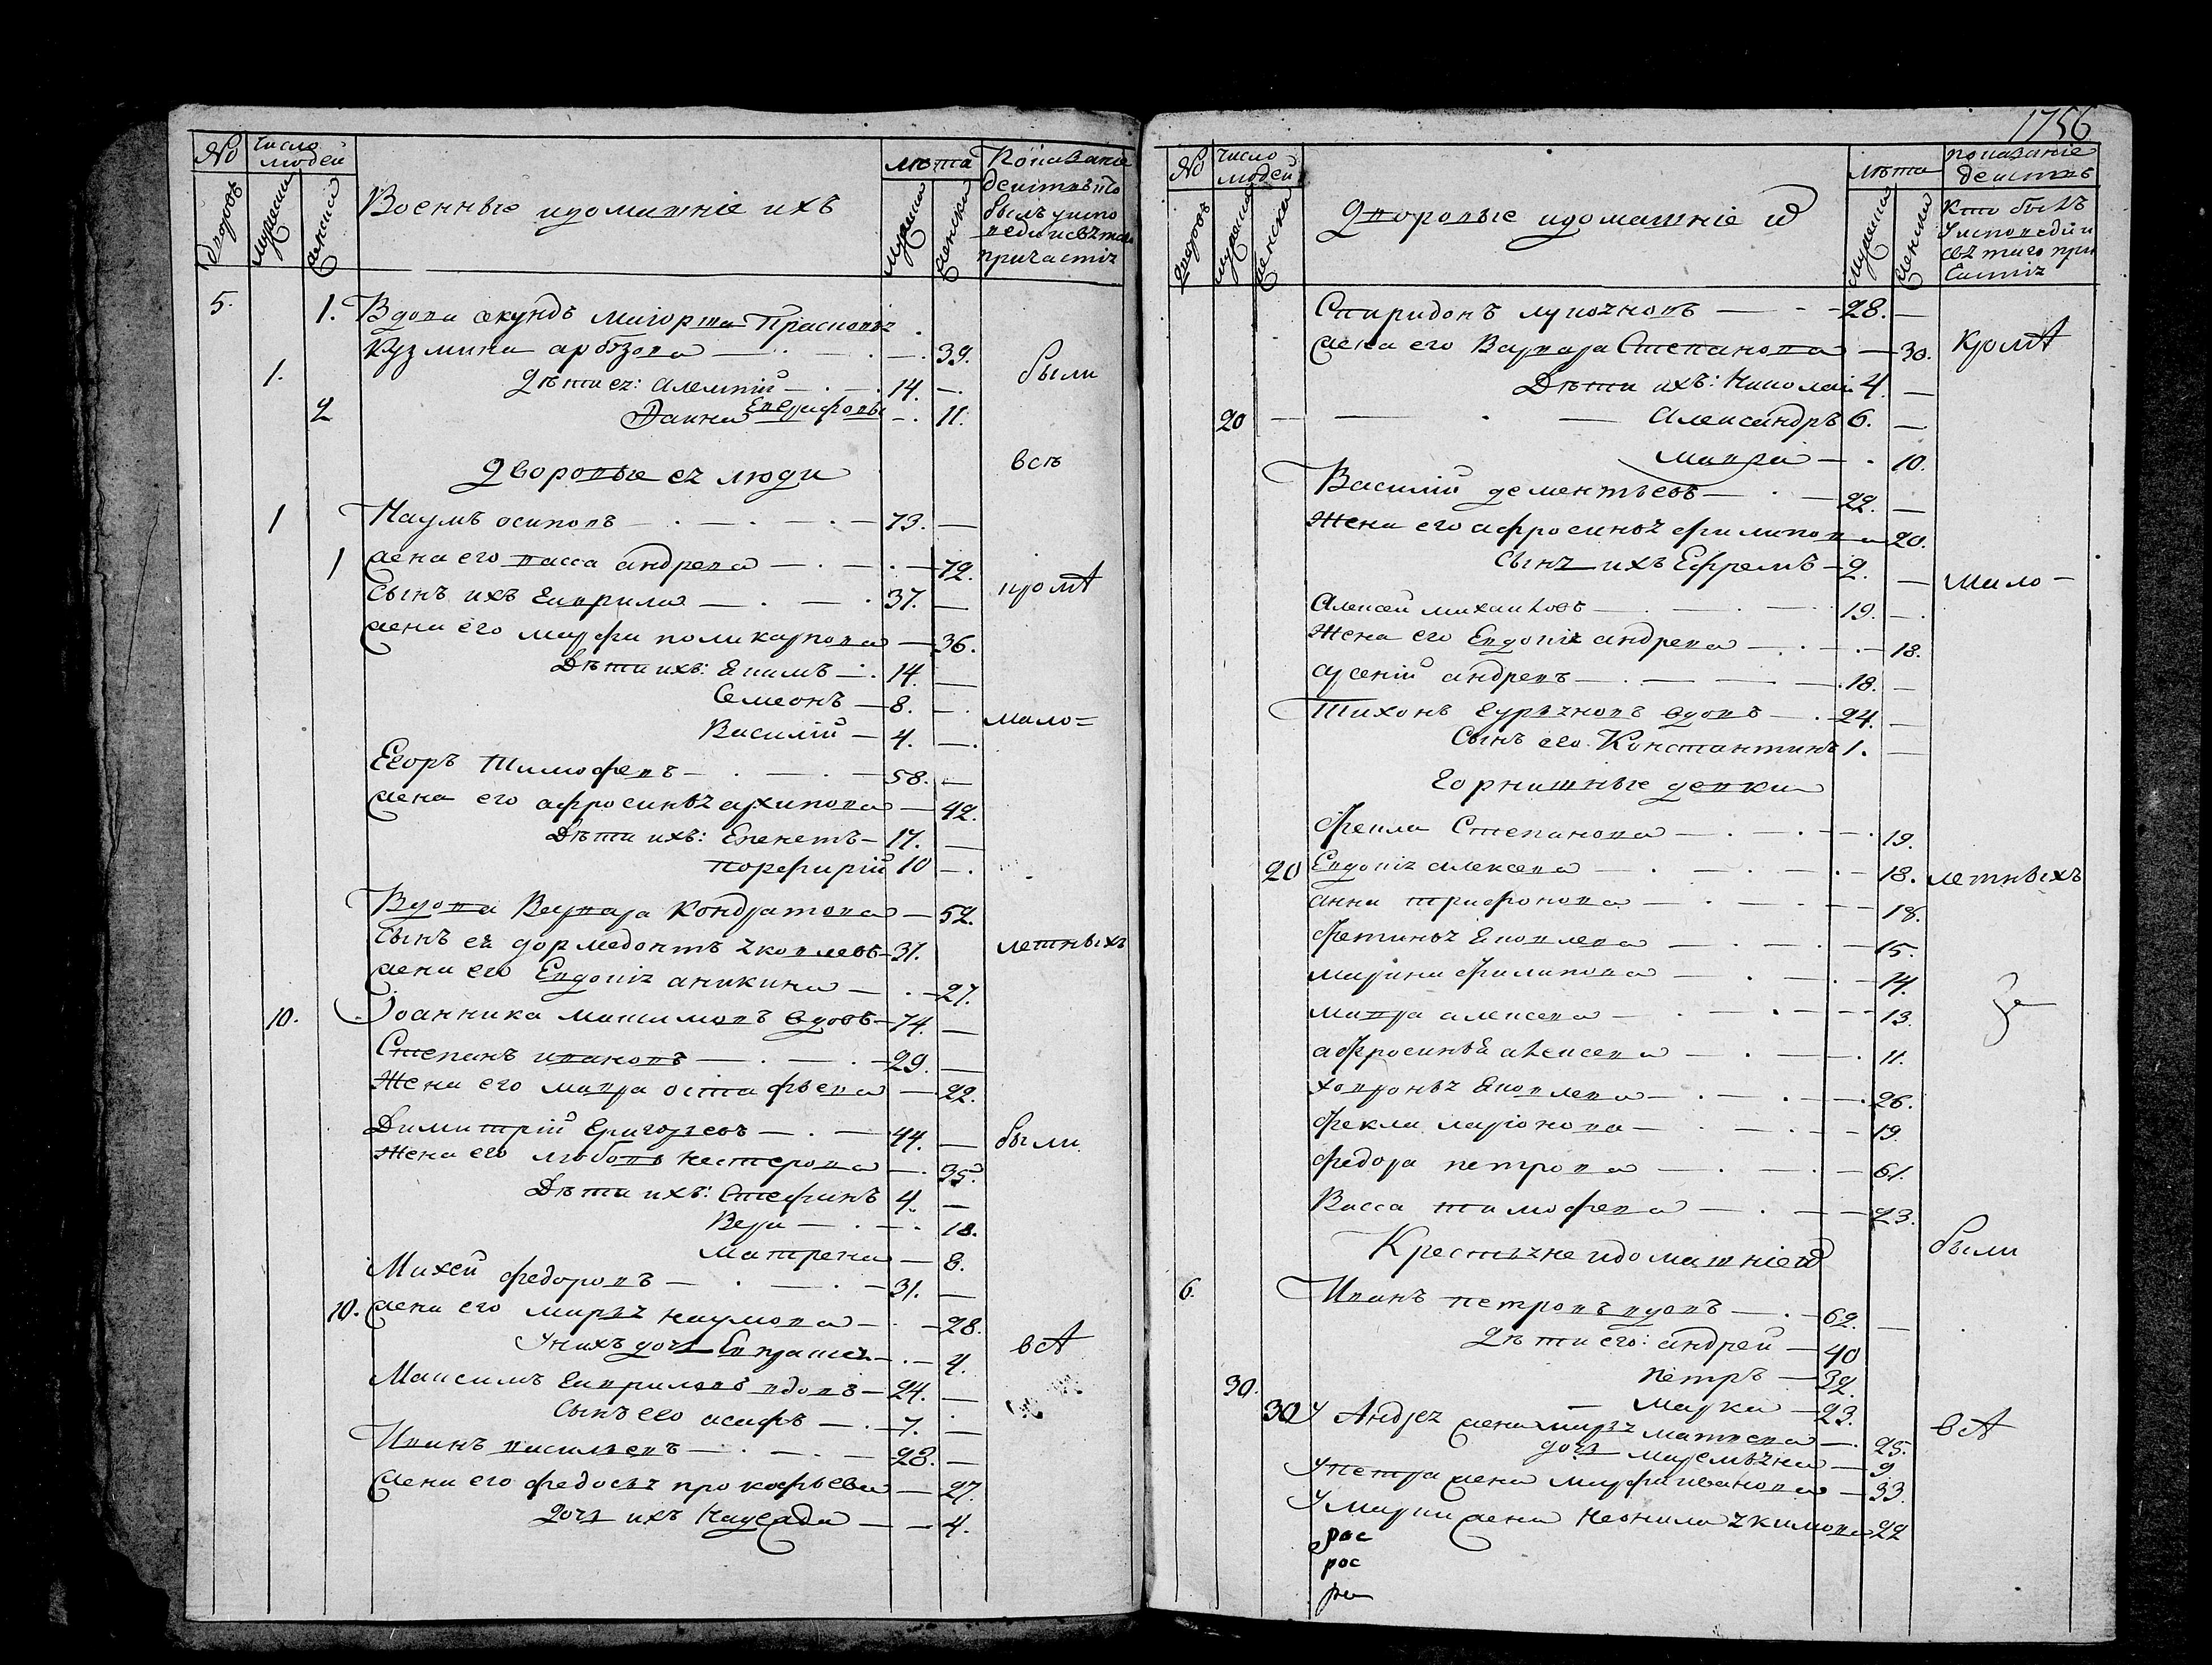 № число людей лѣта Показаніе
дворовъ мужеска женска Военные и домашніе ихъ мужеска женска действъ кто былъ у испо
веди и свѣтаго
причастія
5. 1. Вдова секундъ маіорша Прасковья
Кузмина арбузова 39. были
1. Дѣти ея: Алексѣй 14.
2 Данна 11.
Дворовые ея люди всѣ
1 Наумъ осиповъ 73.
1 жена его васса андрева 72.
Сынъ ихъ Гаврила 37. кромѣ
жена его марфа поликарпова 36.
Дѣти ихъ: Якимъ 14
Семеонъ 8.
Василій 4. мало=
Егоръ Тимофевъ 58.
жена его афросинья архипова 42.
Дѣти ихъ: Епенетъ 17.
порфирій 10
Вдова Варвара Кондратова 52.
Сынъ ея дормедонтъ яковлевъ 31. летныхъ
жена его Евдокия аникина 27.
10. Іоанника максимовъ вдовъ 74.
Степанъ ивановъ 29.
Жена его мавра остафьева 22.
Димитрій Григорьевъ 44. были
Жена его любовь нестерова 35.
Дѣти ихъ: Стефанъ 4.
Вера 18.
матрена 8.
Михей федоровъ 31.
10. жена его марья наумова 28.
У нихъ дочь Евпраксия 4. всѣ
Максимъ Гавриловъ вдовъ 24.
Сынъ его асафъ 7.
Иванъ васильевъ 28.
жена его федосья прокофьева 27.
дочь ихъ 4.
1756
№ число людей лѣта показаніе
дворовъ мужеска женска Дворовые и домашніе их мужеска женска действъ
Кто былъ
У исповеди и
свѣтаго при
частія
Спиридонъ лукояновъ 28.
жена его Варвара Степанова 30. кромѣ
Дѣти ихъ: Николай 4
20 Александръ 6.
мавра 10.
Василій дементьевъ 22.
Жена его афросинья филипова 20.
Сынъ ихъ Ефремъ 2. мало-
Алексей михаиловъ 19.
Жена его Евдокия андрева 18.
арсеній андревъ 18.
Тихонъ вдовъ 24.
Сынъ его Константинъ 1.
Горнишные девки
Фекла Степанова 19.
20 Евдокия алексева 18. летныхъ
анна трифонова 18.
фетинья Яковлева 15.
марина филипова 14.
мавра алексева 13.
афросинья алексева 11.
ховронья Яковлева 26.
Фекла ларіонова 19
Федора петрова 61.
Васса тимофева 23.
Крестьяне и домашніе их были
6. Иванъ петровъ вдовъ 62.
дѣти его: андрей 40
30. петръ 32.
марка 23.
30 У Андрея жена марья матвева 25. всѣ
дочь маремьяна 9
У петра жена марфа иванова 33.
У марки жена неонила якимова 22
рос
рос